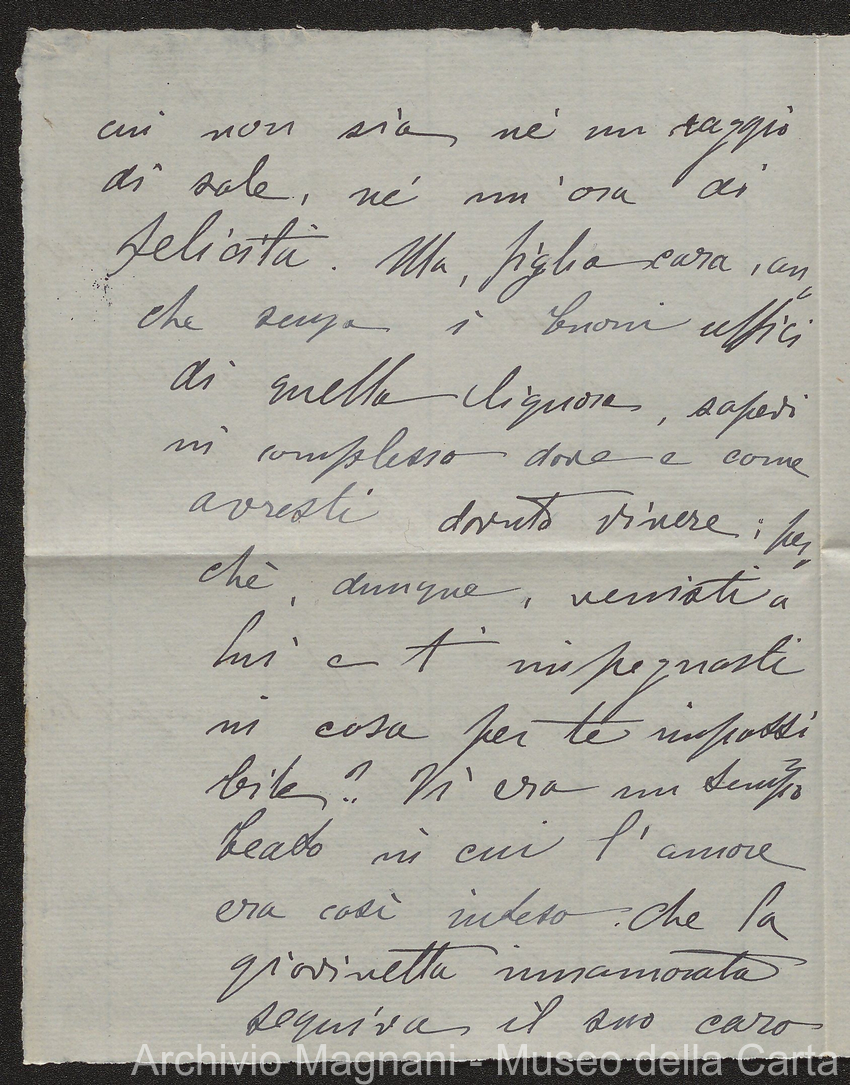 cui non sia né un raggio
di sole, né un'ora di
felicità. Ma, figlia cara, an-
che senza i buoni uffici
di quella signora, sapevi
in complesso dove e come
avresti dovuto vivere; per-
chè, dunque, venisti a
lui e t'impegnasti
in cosa per te impossi
bile? Vi era un tempo
beato in cui l'amore
era così inteso che la
giovinetta innamorata
seguiva il suo caro
Archivio Magnani - Museo della Carta